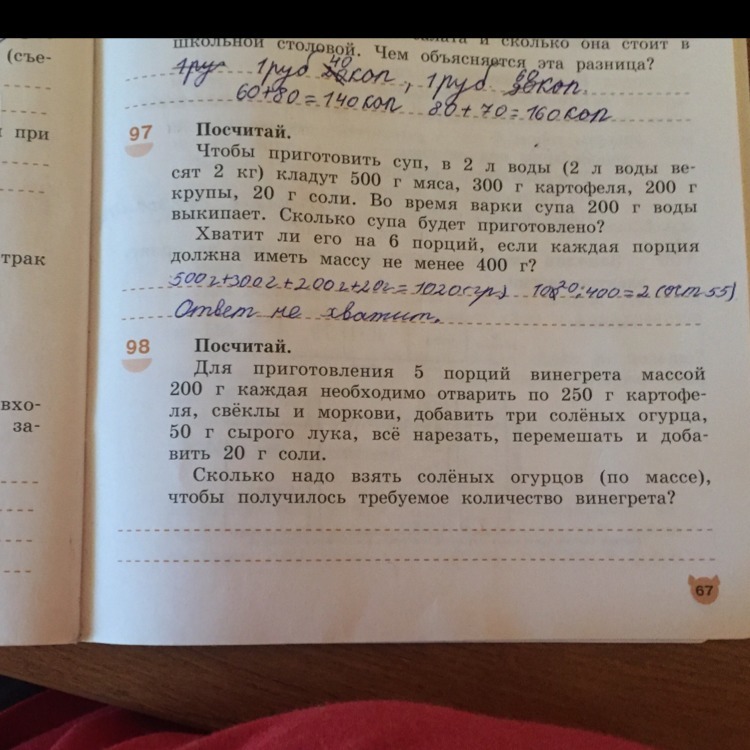 (съе-
при
трак
вхо-
за-
салата и сколько она стоит в
школьной столовой. Чем объясняется эта разница?
1 руб 40 коп, 1 руб 60 коп.
60+80=140 коп 80+70=160 коп
97 Посчитай.
Чтобы приготовить суп, в 2 л воды (2 л воды ве-
сят 2 кг) кладут 500 г мяса, 300 г картофеля, 200 г
крупы, 20 г соли. Во время варки супа 200 г воды
выкипает. Сколько супа будет приготовлено?
Хватит ли его на 6 порций, если каждая порция
должна иметь массу не менее 400 г?
500г+300г+200г+20г=1020(гр) 1020:400=2(ост 55)
Ответ не хватит.
98 Посчитай.
Для приготовления 5 порций винегрета массой
200 г каждая необходимо отварить по 250 г картофе-
ля, свёклы и моркови, добавить три солёных огурца,
50 г сырого лука, всё нарезать, перемешать и доба-
вить 20 г соли.
Сколько надо взять солёных огурцов (по массе),
чтобы получилось требуемое количество винегрета?
67